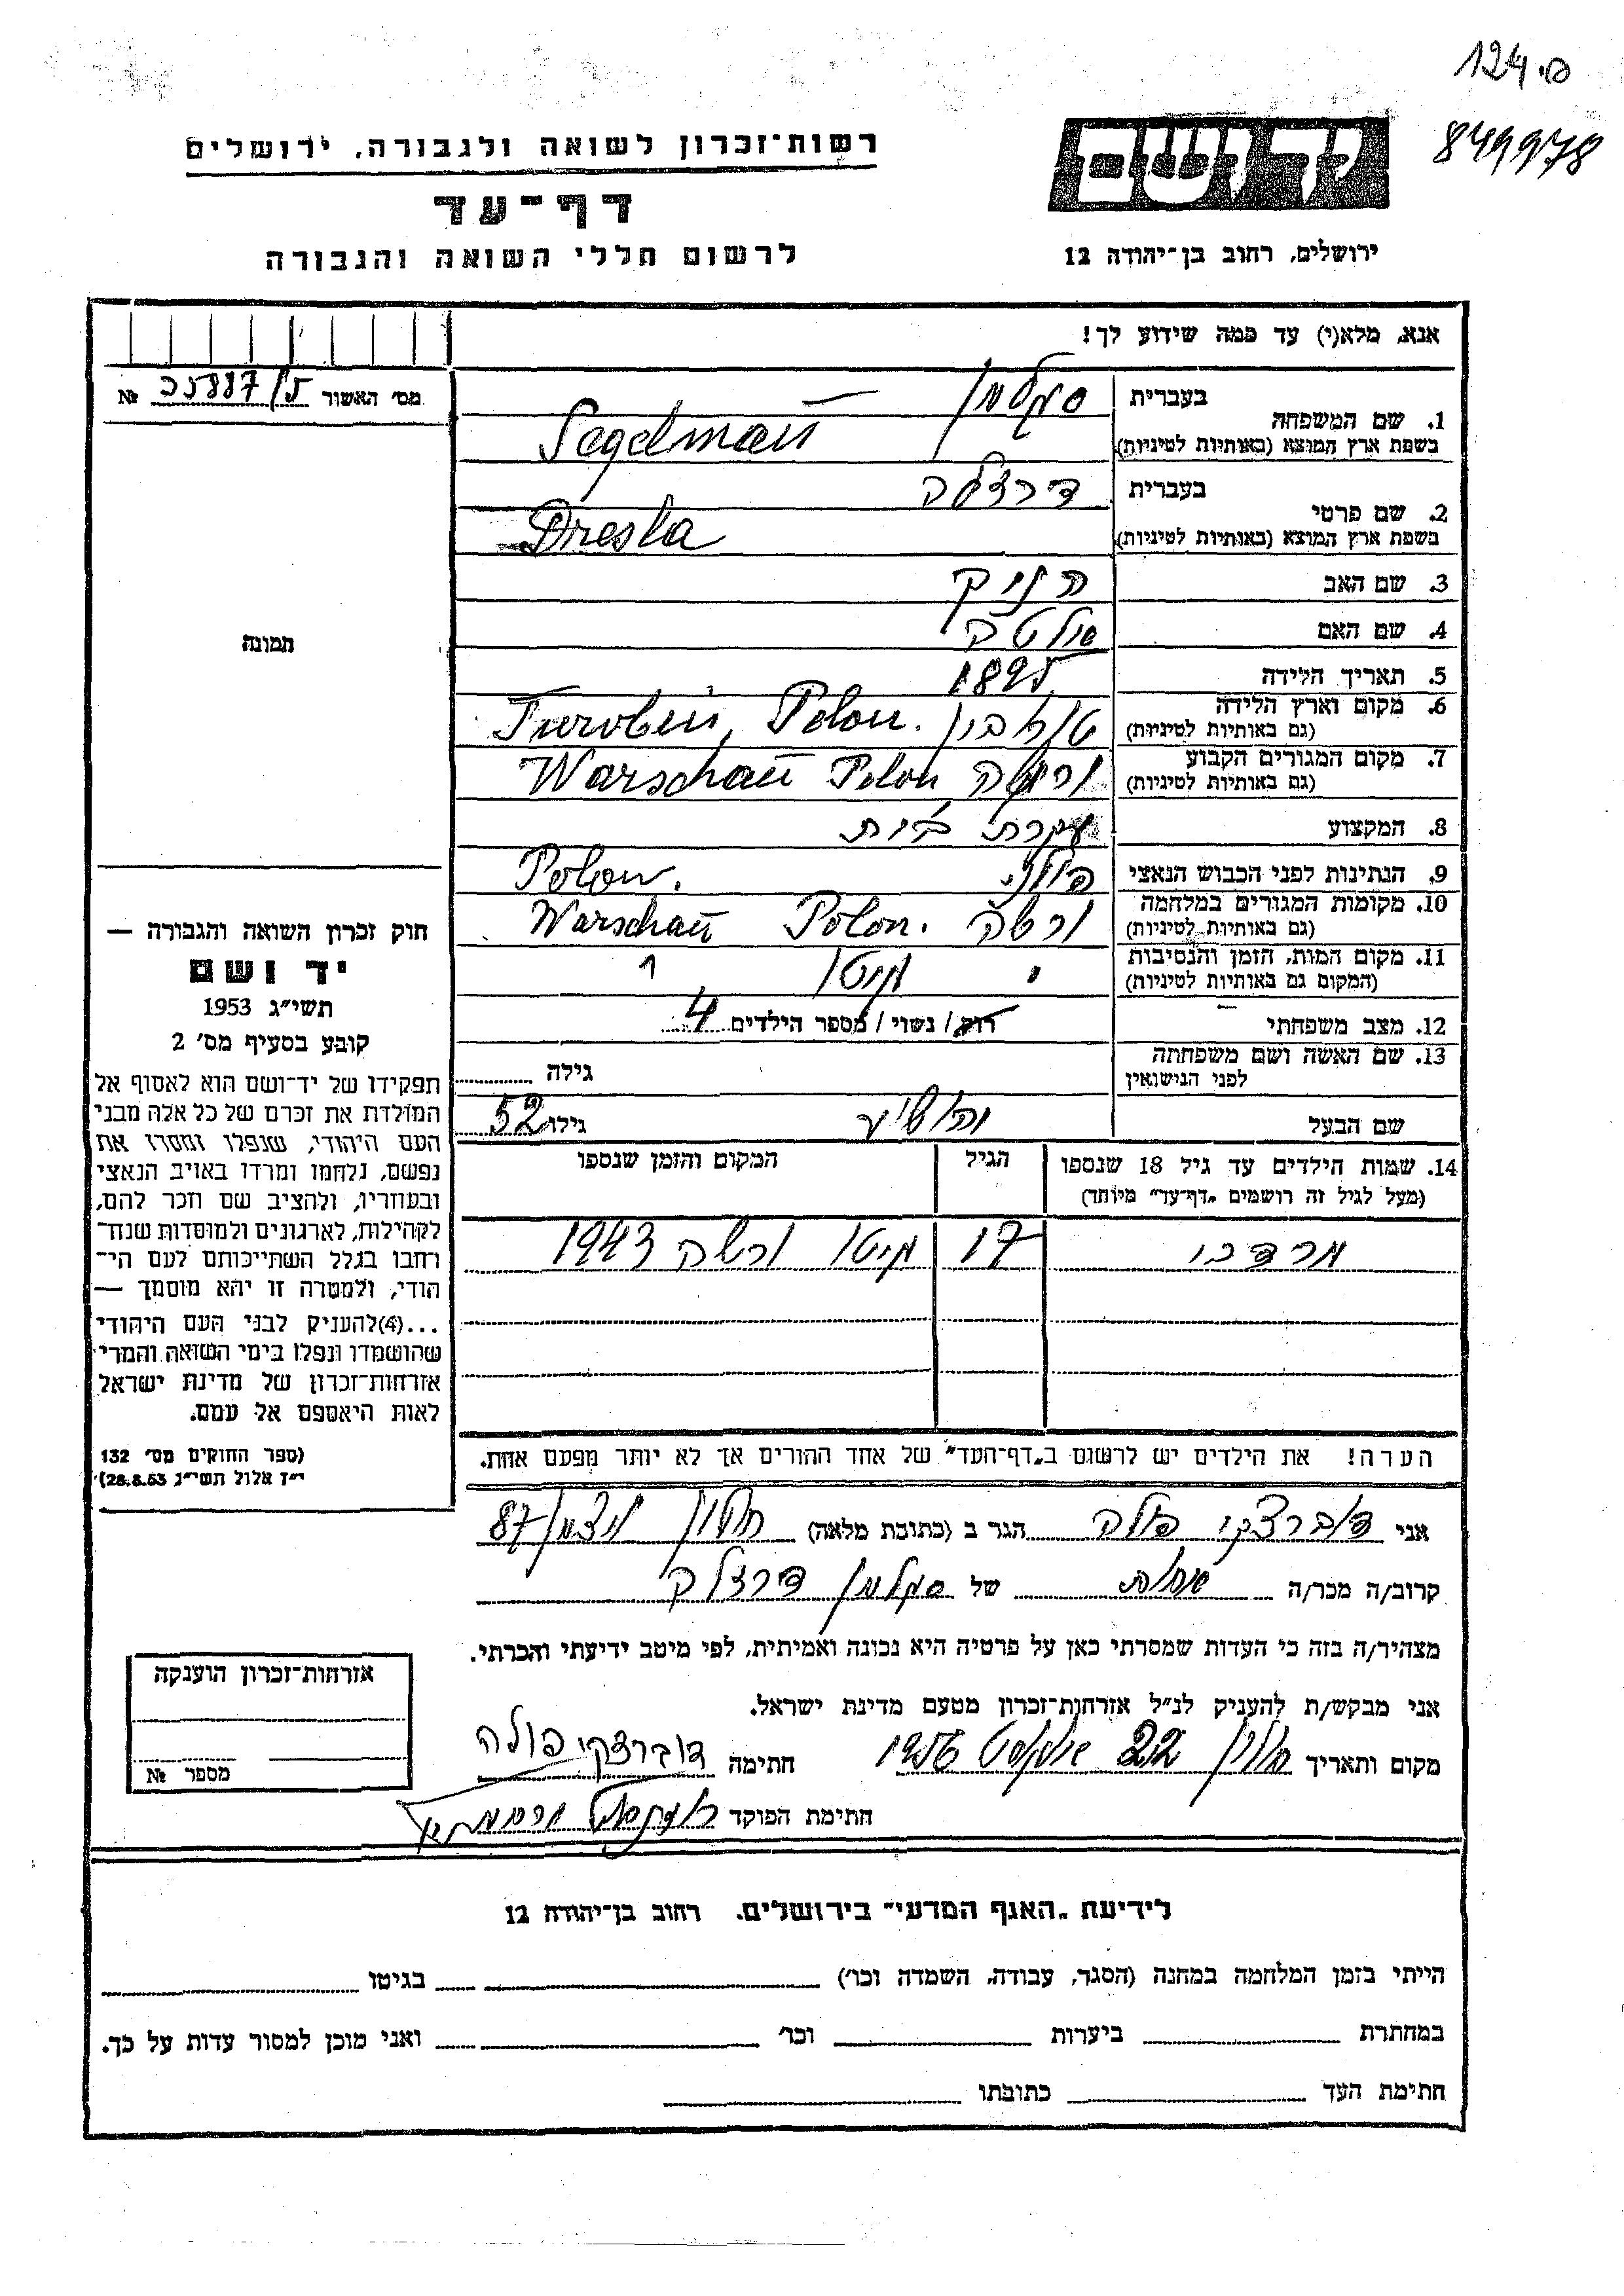 124.פ
849978
יד ושם
רשות־זכרון לשואה ולגבורה, ירושלים
דף־עד
ירושלים, רחוב בן־יהודה 12
לרשום חללי השואה והגבורה
אנא, מלא(י) עד כמה שידוע לך!
מס׳ האשור №
1. שם המשפחה
בעברית סגלמן
בשפת ארץ המוצא (באותיות לטיניות) Segelman
2. שם פרטי
בעברית דרצלה
בשפת ארץ המוצא (באותיות לטיניות) Dresla
3. שם האב
4. שם האם
5. תאריך הלידה 1895
6. מקום וארץ הלידה
(גם באותיות לטיניות) טורבין Turobin, Polon.
7. מקום המגורים הקבוע
(גם באותיות לטיניות) ורשה Warschau Polon
8. המקצוע עקרת בית
9. הנתינות לפני הכבוש הנאצי פולני Polon.
10. מקומות המגורים במלחמה
(גם באותיות לטיניות) ורשה Warschau Polon.
11. מקום המות, הזמן והנסיבות
(המקום גם באותיות לטיניות) גיטו
12. מצב משפחתי רוק / נשוי / מספר הילדים 4
13. שם האשה ושם משפחתה
לפני הנישואין גילה
שם הבעל גילו 52
14. שמות הילדים עד גיל 18 שנספו
(מעל לגיל זה רושמים „דף־עד״ מיוחד)
הגיל
המקום והזמן שנספו
מרדכי 17 גיטו ורשה 1943
הערה! את הילדים יש לרשום ב„דף־העד״ של אחד ההורים אך לא יותר מפעם אחת.
תמונה
חוק זכרון השואה והגבורה —
יד ושם
תשי״ג 1953
קובע בסעיף מס׳ 2
תפקידו של יד־ושם הוא לאסוף אל
המולדת את זכרם של כל אלה מבני
העם היהודי, שנפלו ומסרו את
נפשם, נלחמו ומרדו באויב הנאצי
ובעוזריו, ולהציב שם וזכר להם,
לקהילות, לארגונים ולמוסדות שנח־
רבו בגלל השתייכותם לעם הי־
הודי, ולמטרה זו יהא מוסמך —
...(4)להעניק לבני העם היהודי
שהושמדו ונפלו בימי השואה והמרי
אזרחות־זכרון של מדינת ישראל
לאות היאספם אל עמם.
(ספר החוקים מס׳ 132
י״ז אלול תשי״ג 28.8.53)
אני דוברצקי פולה הגר ב (כתובת מלאה) חולון ויצמן 87
קרוב/ה מכר/ה של סגלמן דרצלה
מצהיר/ה בזה כי העדות שמסרתי כאן על פרטיה היא נכונה ואמיתית, לפי מיטב ידיעתי והכרתי.
אני מבקש/ת להעניק לנ״ל אזרחות־זכרון מטעם מדינת ישראל.
מקום ותאריך חולון 22 אוגוסט 1956 חתימה דוברצקי פולה
חתימת הפוקד
אזרחות־זכרון הוענקה
מספר №
לידיעת „האגף המדעי״ בירושלים. רחוב בן־יהודה 12
הייתי בזמן המלחמה במחנה (הסגר, עבודה, השמדה וכו׳) בגיטו
במחתרת ביערות וכו׳ ואני מוכן למסור עדות על כך.
חתימת העד כתובתו